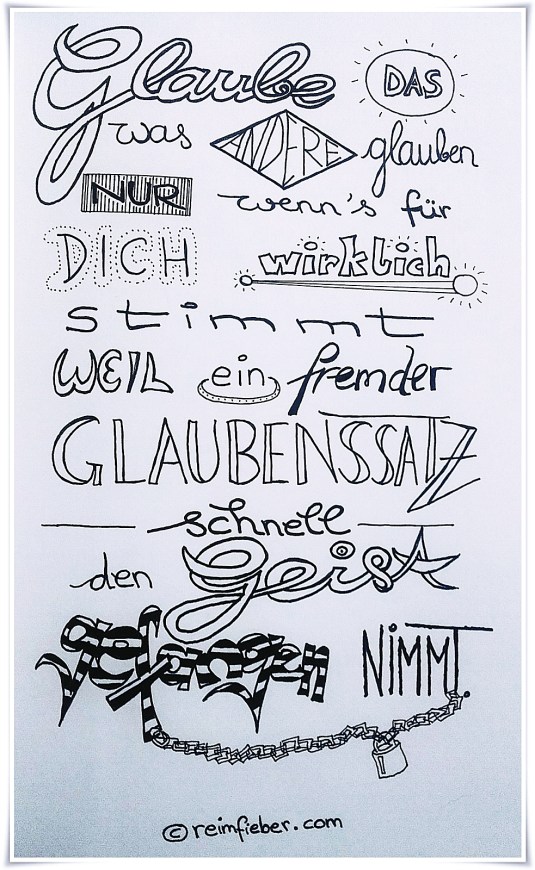 Glaube DAS
was ANDERE glauben
NUR wenn's für
DICH wirklich
stimmt
WEIL ein fremder
GLAUBENSSATZ
schnell
den Geist
gefangen NIMMT.
© reimfieber.com